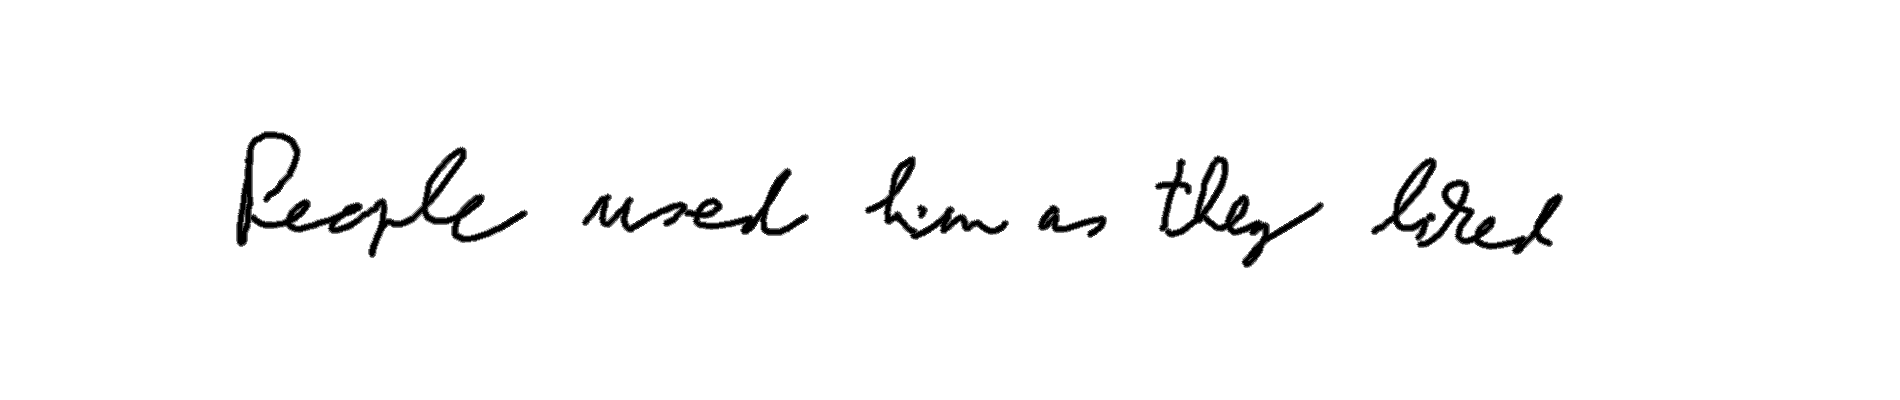 People used him as they liked